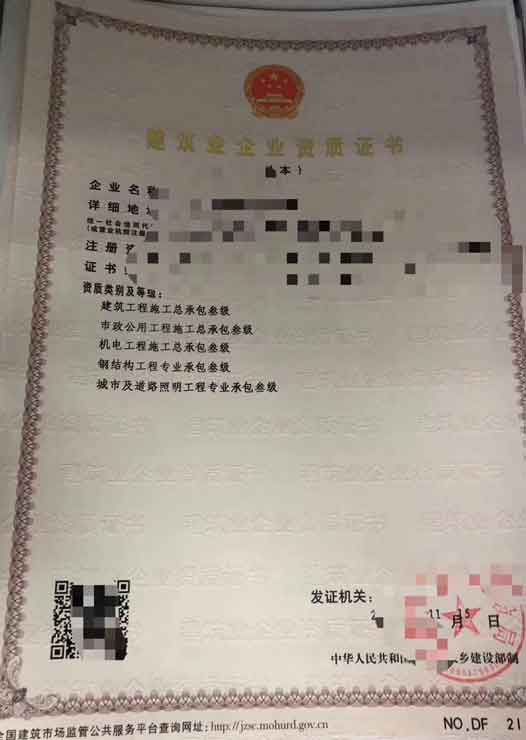 建筑业企业资质证书
本）
企业名称
详细地
统一社会信用代
（或营业执照注册
注册
证书
资质类别及等级：
建筑工程施工总承包叁级
市政公用工程施工总承包叁级
机电工程施工总承包叁级
钢结构工程专业承包叁级
城市及道路照明工程专业承包叁级
发证机关：
2 11月5日
中华人民共和国 乡建设部制
全国建筑市场监管公共服务平台查询网址：http://jzsc.mohurd.gov.cn
NO.DF 21